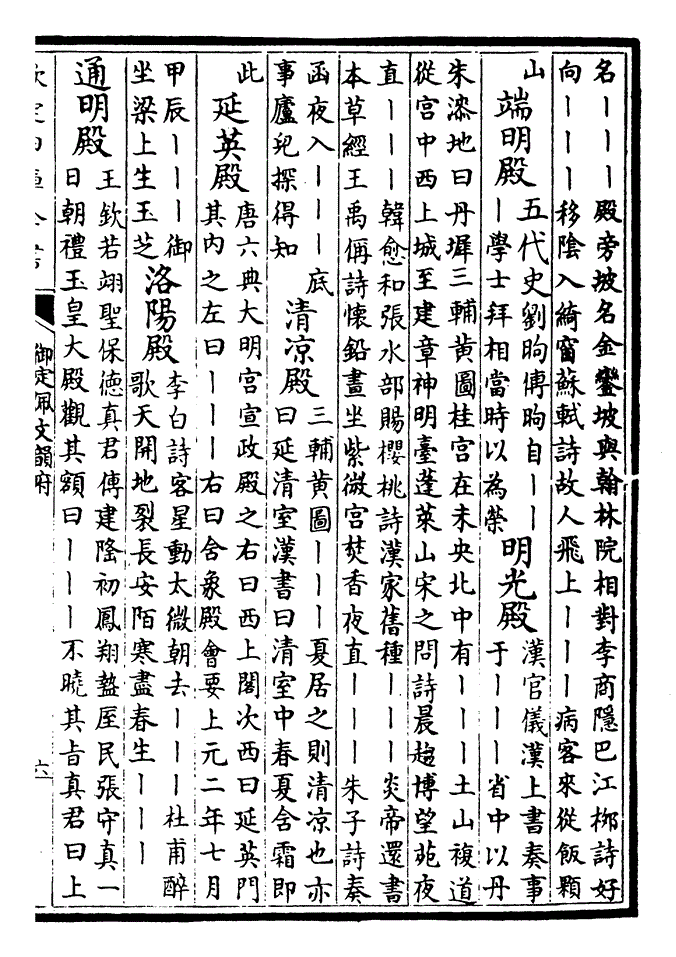 名｜｜｜殿旁坡名金鑾坡與翰林院相對李商隱巴江栁詩好
向｜｜｜移陰入綺窗蘇軾詩故人飛上｜｜｜病客來從飯顆
山
端明殿
五代史劉昫傳昫自｜｜
｜學士拜相當時以為榮
明光殿
漢官儀漢上書奏事
于｜｜｜省中以丹
朱漆地曰丹墀三輔黄圖桂宫在未央北中有｜｜｜土山複道
從宫中西上城至建章神明臺蓬萊山宋之問詩晨趨博望苑夜
直｜｜｜韓愈和張水部賜櫻桃詩漢家舊種｜｜｜炎帝還書
本草經王禹偁詩懷鉛晝坐紫微宫焚香夜直｜｜｜朱子詩奏
函夜入｜｜｜底
事廬兒探得知
清凉殿
三輔黄圖｜｜｜夏居之則清凉也亦
曰延清室漢書曰清室中春夏含霜即
此
延英殿
唐六典大明宫宣政殿之右曰西上閤次西曰延英門
其内之左曰｜｜｜右曰含象殿會要上元二年七月
甲辰｜｜｜御
坐梁上生玉芝
洛陽殿
李白詩客星動太微朝去｜｜｜杜甫醉
歌天開地裂長安陌寒盡春生｜｜｜
通明殿
王欽若翊聖保徳真君傳建隆初鳳翔盩厔民張守真一
日朝禮玉皇大殿觀其額曰｜｜｜不曉其旨真君曰上
欽定四庫全書
御定佩文韻府
六